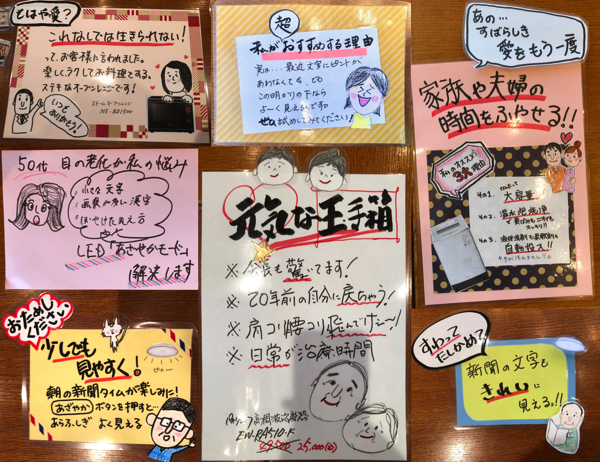 もはや愛?
これなしでは生きられない!
って、お客様に言われました。
楽しくラクしてお料理できる、
ステキなオーブンレンジです!
スチームオーブンレンジ
NE-BS1500
いつもありがとう!
超
私がおすすめする理由
実は…最近文字にピントが
あわなくても
この明かりの下なら
よーく見えるんです
ぜひ試めしてみてください!
あの…
すばらしき
愛をもう一度
家族や夫婦の
時間をふやせる!!
私のオススメ
3大理由
No.1.
大容量
No.2. 温水泡洗浄
No.3.
自動投入!!
50代 目の老化が私の悩み
小さな文字
画数が多い漢字
ぼやけた見え方
LED「あざやかモード」
解決します
元気な玉手箱
※ 会長も驚いてます!
※ 20年前の自分に戻ちゃう!
※ 肩コリ腰コリ飛んでけ~!
※ 日常が治療時間
EW-RA510-K
25,000
おためしください
少しでも
見やすく!
朝の新聞タイムが楽しみに!
あざやか ボタンを押すと…
あらふしぎ よく見える
すわって
たしかめて
新聞の文字も
きれいに
見える!!